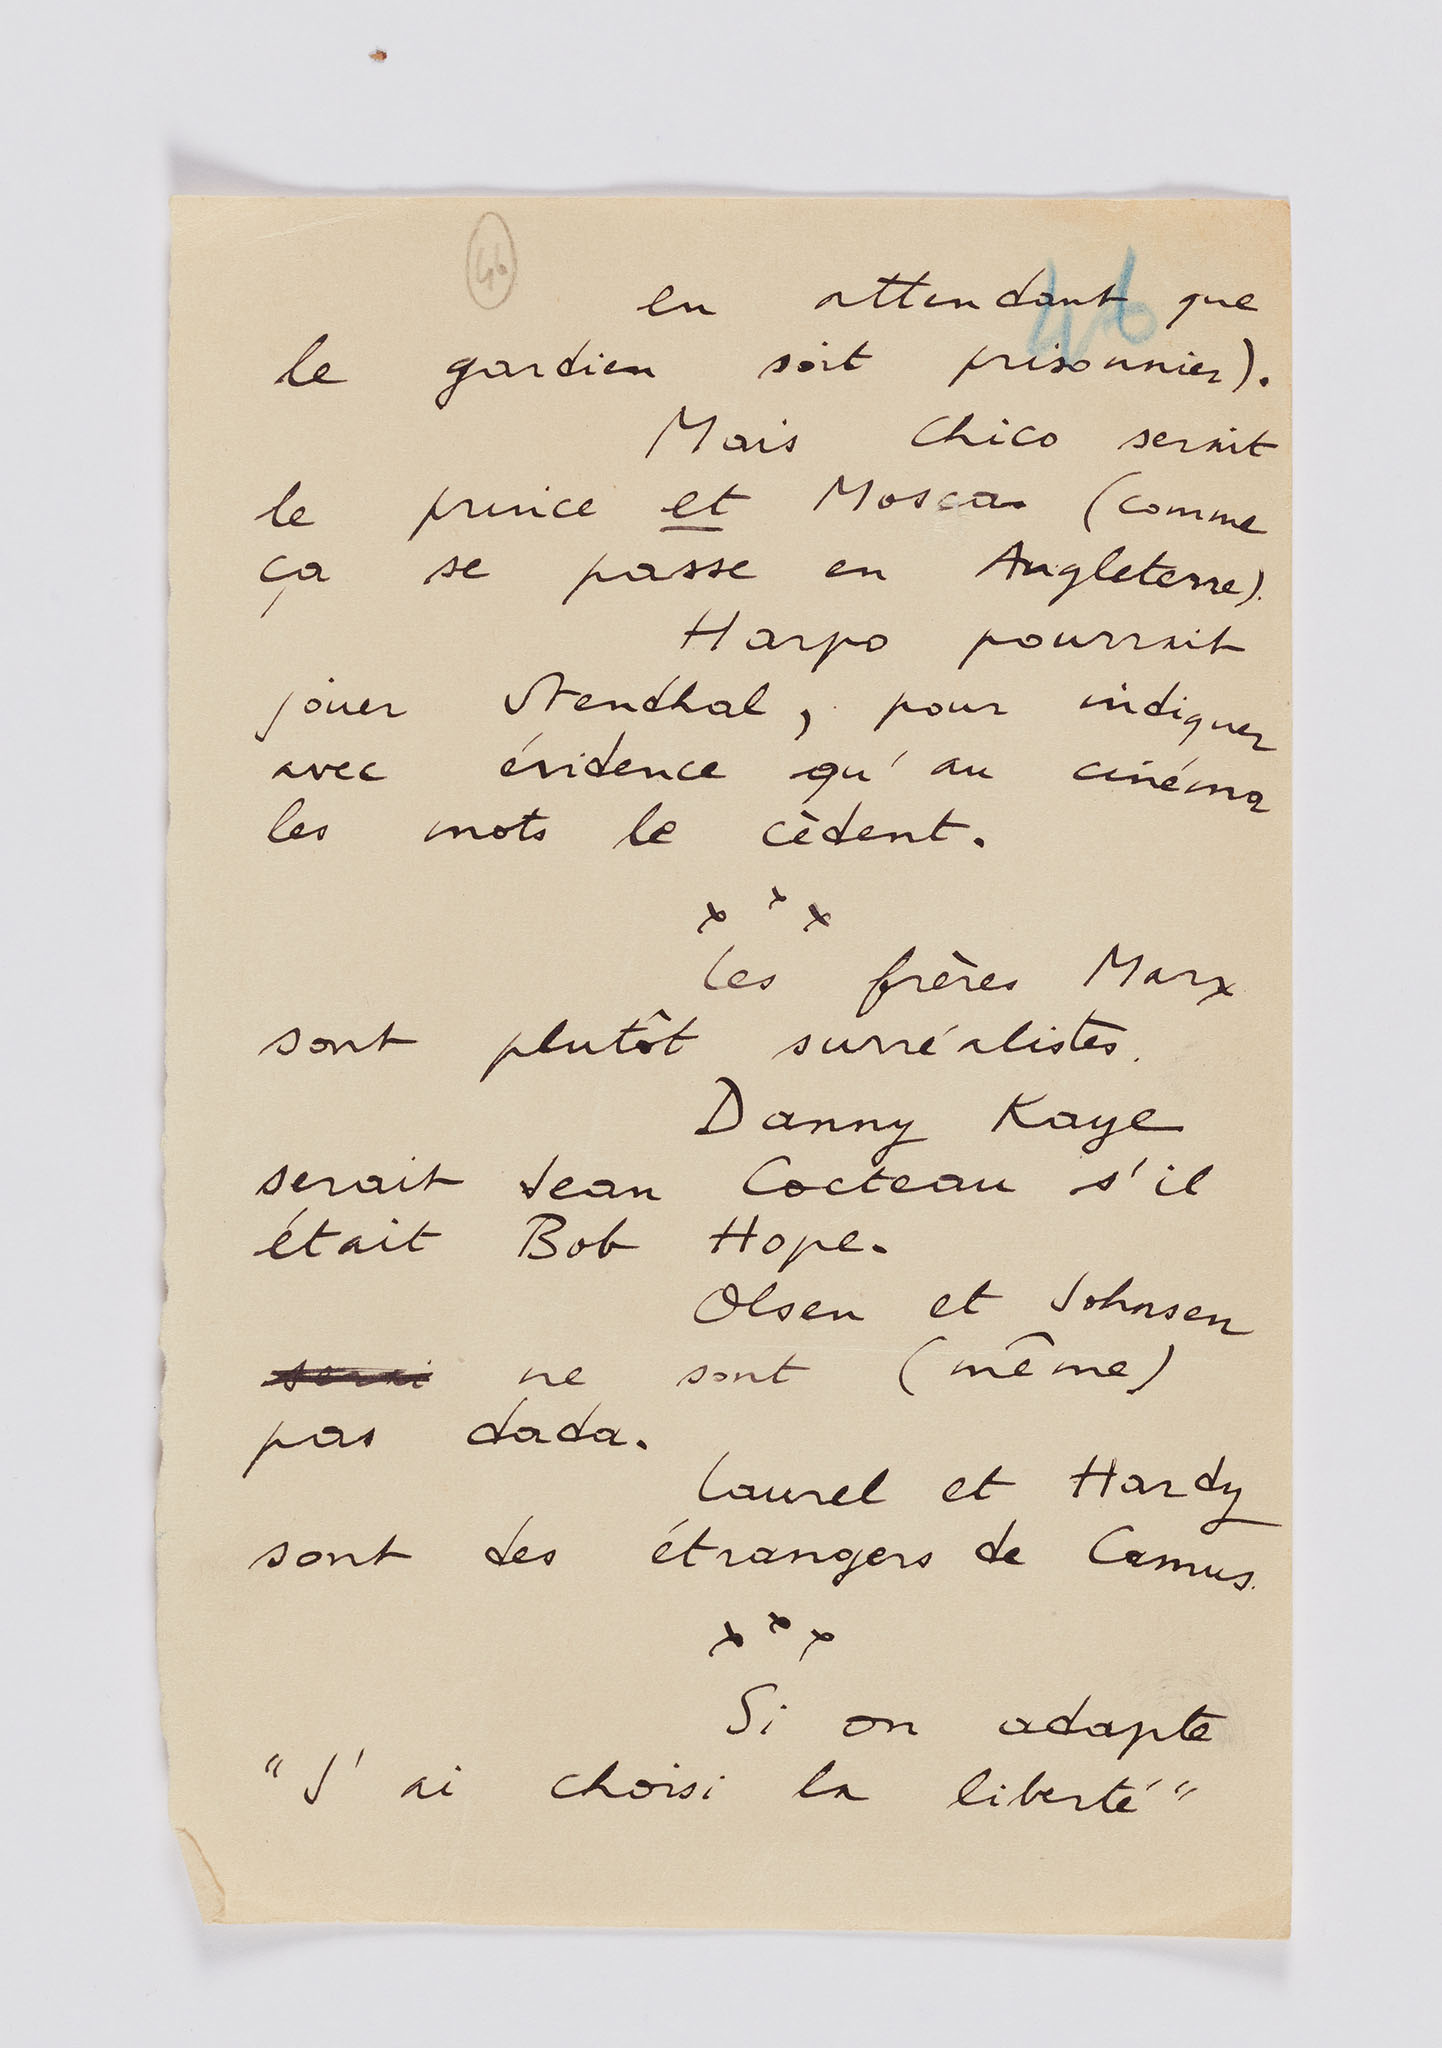 46
46
en attendant que
le gardien soit prisonnier).
Mais Chico serait
le prince et Mosca (comme
ça se passe en Angleterre).
Harpo pourrait
jouer Stendhal, pour indiquer
avec évidence qu'au cinéma
les mots le cèdent.
x x x
Les frères Marx
sont plutôt surréalistes.
Danny Kaye
serait Jean Cocteau s'il
était Bob Hope.
Olsen et Johnsen
serai ne sont (même)
pas dada.
Laurel et Hardy
sont des étrangers de Camus.
x x x
Si on adapte
"J'ai choisi la liberté"